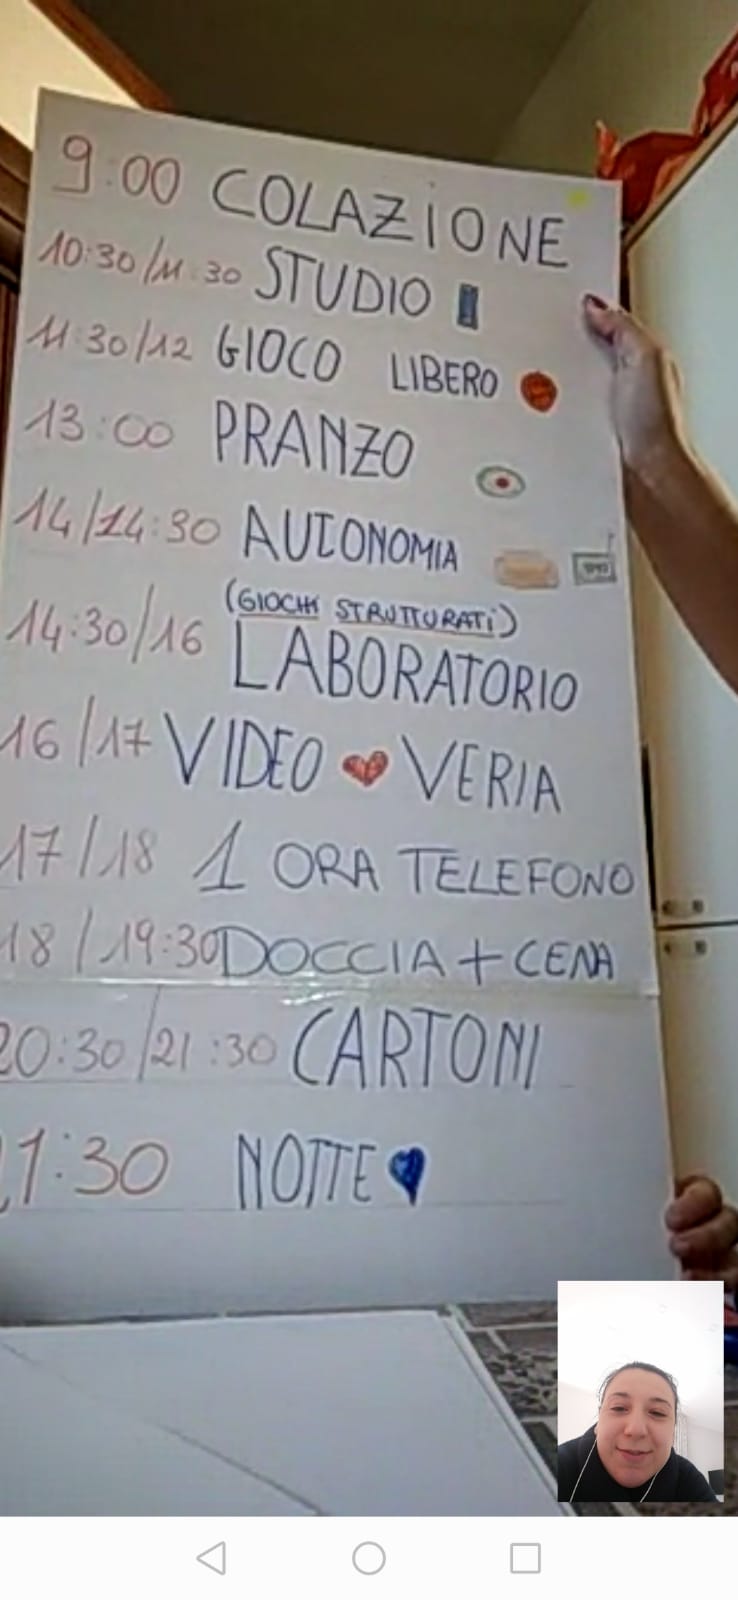 9:00 COLAZIONE
10:30/11:30 STUDIO
11:30/12 GIOCO LIBERO
13:00 PRANZO
14/14:30 AUTONOMIA
(GIOCHI STRUTTURATI)
14:30/16 LABORATORIO
16/17 VIDEO VERIA
17/18 1 ORA TELEFONO
18/19:30 DOCCIA + CENA
20:30/21:30 CARTONI
1:30 NOTTE